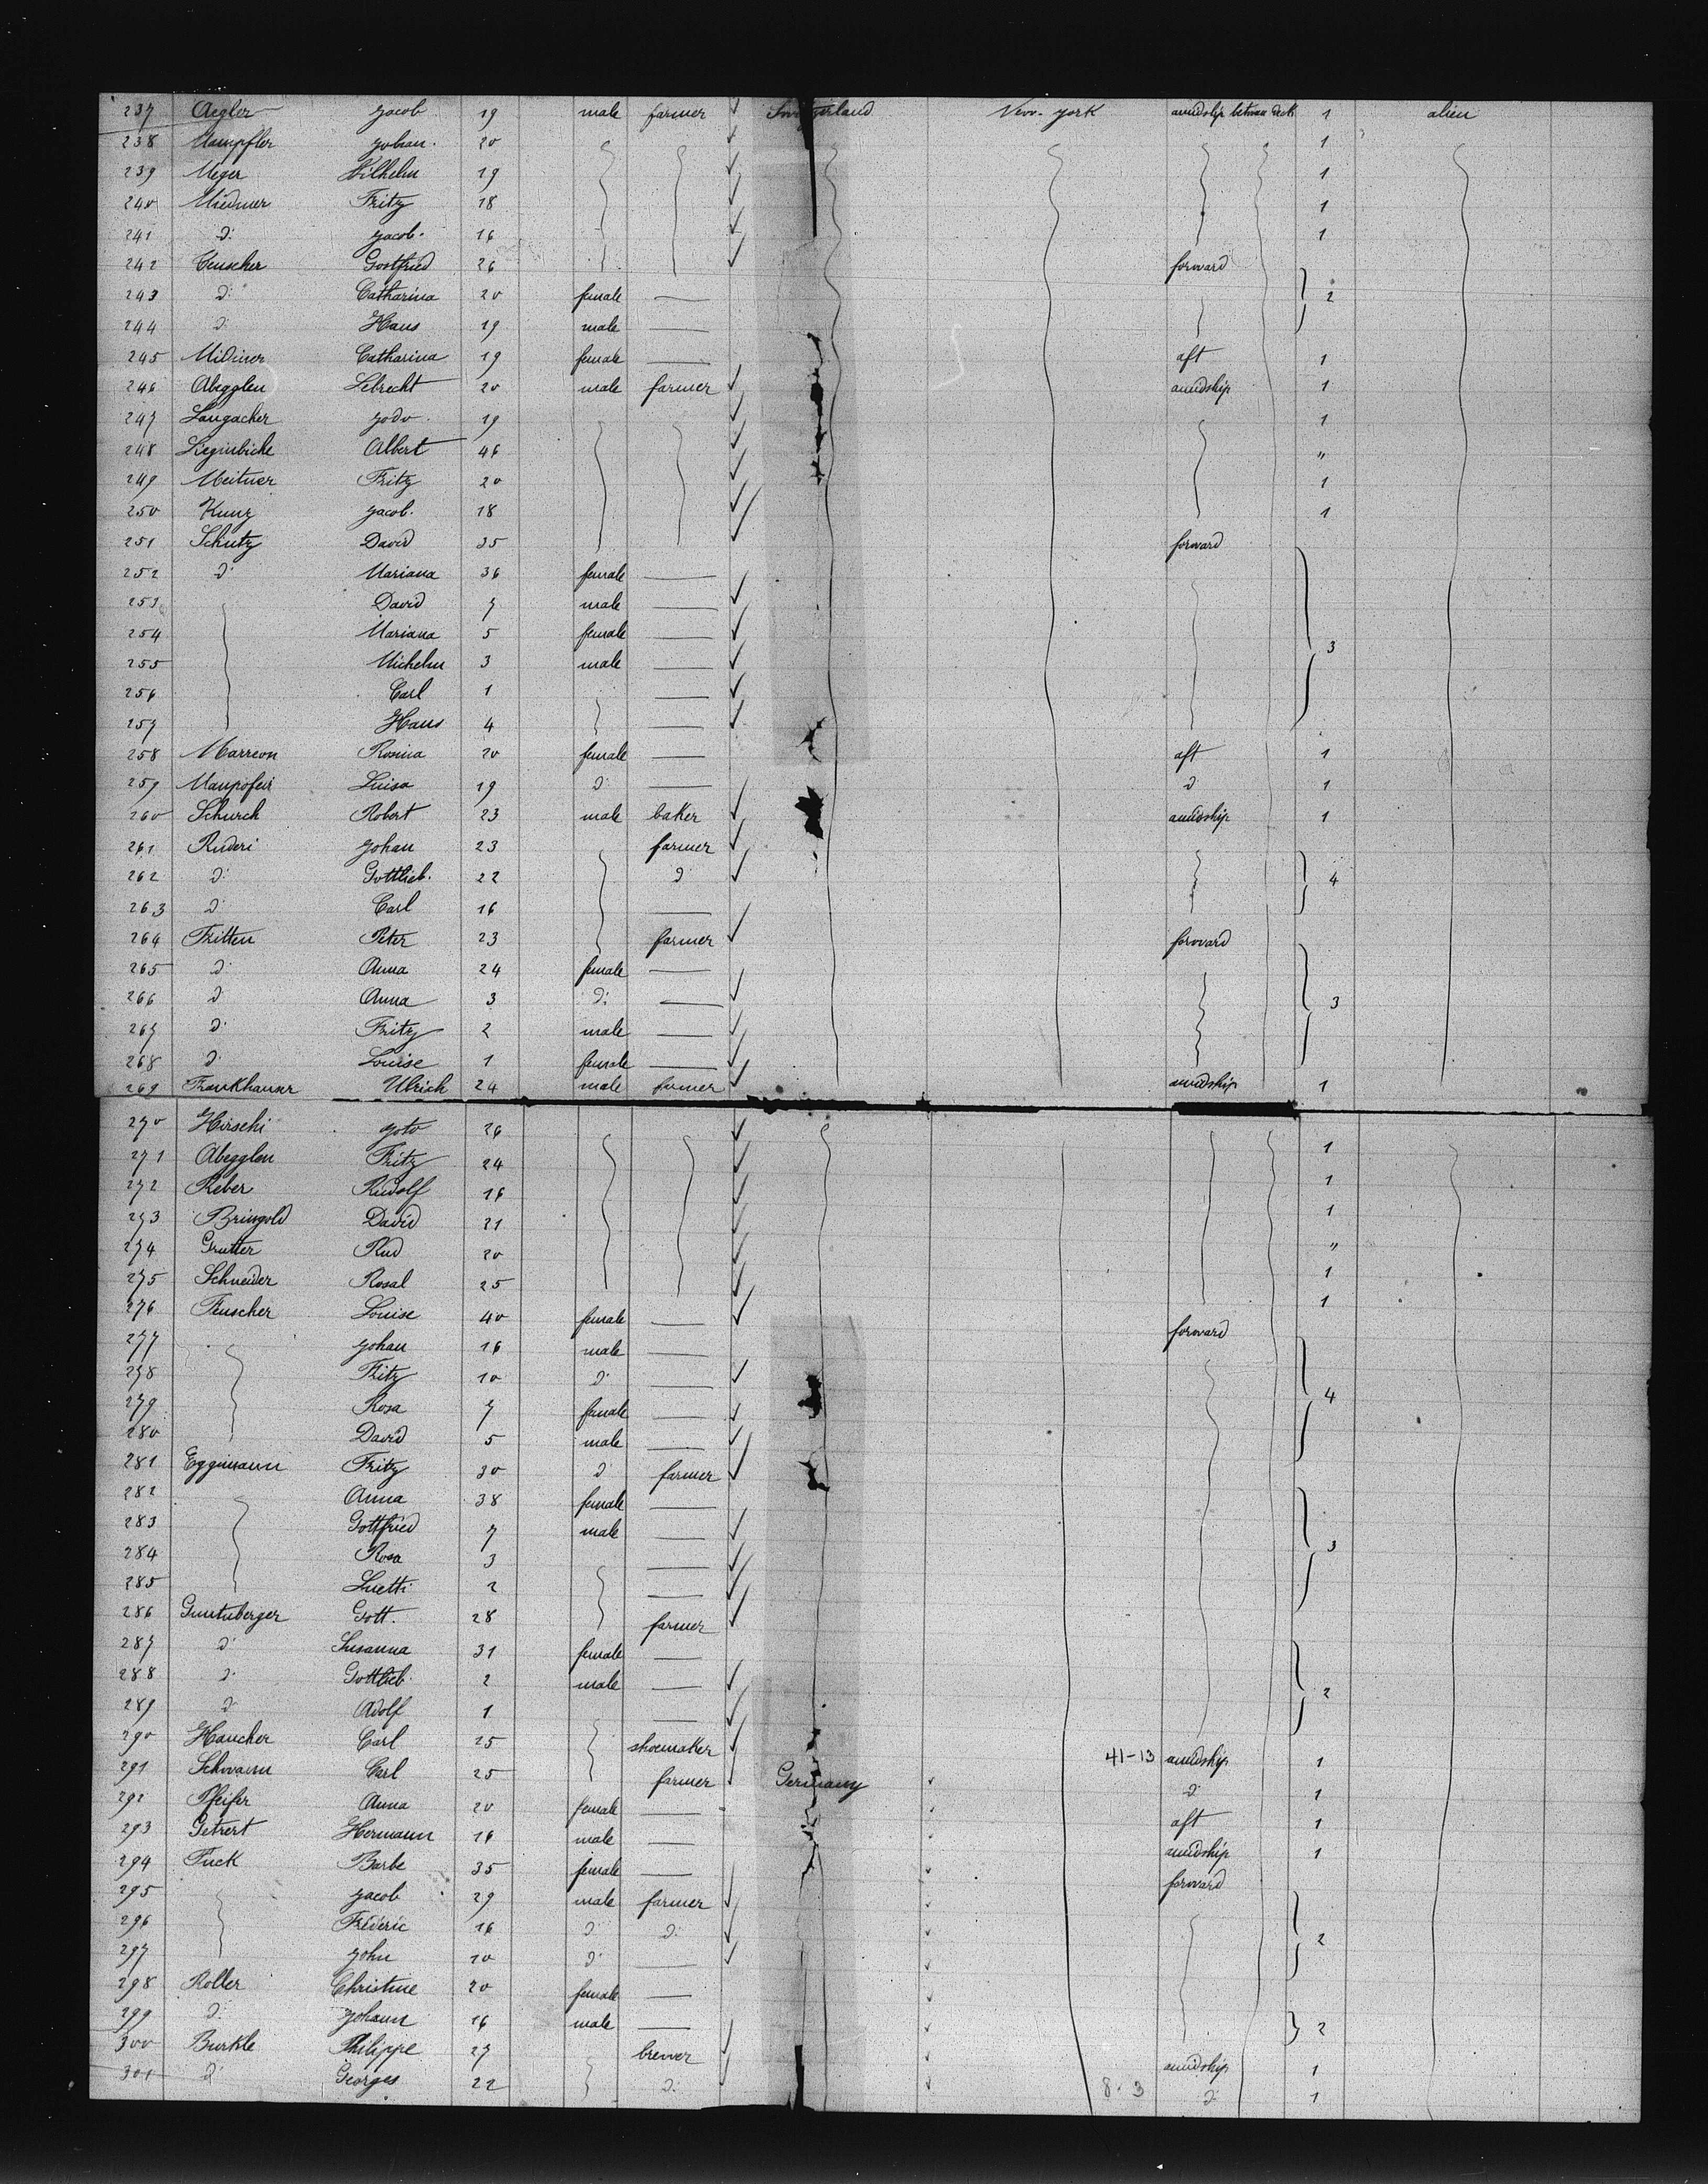 237 Aegler Jacob 19 male farmer ✓ Switzerland New-york amidship between deck 1 alien
238 Johan. 20 ✓ 1
239 Meyer Wilhelm 19 ✓ 1
240 Widmer Fritz 18 ✓ 1
241 d: Jacob. 16 ✓ 1
242 Teuscher Gottfried 26 ✓ forward
243 d: Catharina 20 female — 2
244 d: Hans 19 male —
245 Midiner Catharina 19 female — aft 1
246 Abegglen Lebrecht 20 male farmer ✓ amidship 1
247 Langacher Jodo. 19 ✓ 1
248 Albert 46 ✓ "
249 Meituer Fritz 20 ✓ 1
250 Kunz Jacob. 18 ✓ 1
251 Schutz David 35 ✓ forward
252 d: Mariana 36 female —
253 David 7 male — ✓
254 Mariana 5 female — ✓
255 Michelm 3 male — ✓ 3
256 Carl 1 — ✓
257 Hans 4 — ✓
258 Marreon Rosina 20 female — aft 1
259 Luisa 19 d: — d 1
260 Schurch Robert 23 male baker ✓ amidship 1
261 Ruderi Johan 23 farmer ✓
262 d: Gottlieb. 22 d ✓ 4
263 d: Carl 16 —
264 Tritten Peter 23 farmer ✓ forward
265 d: Anna 24 female —
266 d: Anna 3 d: — ✓ 3
267 d: Fritz 2 male — ✓
268 d: Louise 1 female — ✓
269 Frankhauser Ulrich 24 male farmer ✓ amidship 1
270 Hirschi Joto 26 ✓
271 Abegglen Fritz 24 ✓ 1
272 Reber Rudolf 16 ✓ 1
273 Bringold David 21 ✓ 1
274 Grutter Rud 20 ✓ "
275 Schneider Rosal 25 ✓ 1
276 Teuscher Louise 40 female — ✓ 1
277 Johan 16 male — forward
278 Fritz 10 d: — ✓
279 Rosa 7 female — ✓ 4
280 David 5 male — ✓
281 Eggimann Fritz 30 d farmer ✓
282 Anna 38 female —
283 Gottfried 7 male — ✓
284 Rosa 3 — ✓ 3
285 Luetti 2 — ✓
286 Guntuberger Gott. 28 farmer ✓
287 d: Susanna 31 female —
288 d: Gottlieb. 2 male — ✓ 2
289 d: Adolf 1 — ✓
290 Haucher Carl 25 shoemaker ✓ 41-13 amidship 1
291 Schwann Carl 25 farmer ✓ Germany ✓ d: 1
292 Pfeifer Anna 20 female — aft 1
293 Getrert Hermann 16 male — amidship 1
294 Puck Barbe 35 female — ✓ forward
295 Jacob 29 male farmer ✓ ✓
296 Fréderic 16 d d: ✓ ✓ 2
297 John 10 d: — ✓ ✓
298 Roller Christine 20 female — ✓
299 d: Johann 16 male — ✓ 2
300 Burkle Philippe 27 brewer ✓ ✓ amidship 1
301 d: Georges 22 d: ✓ ✓ 8. 3 d: 1